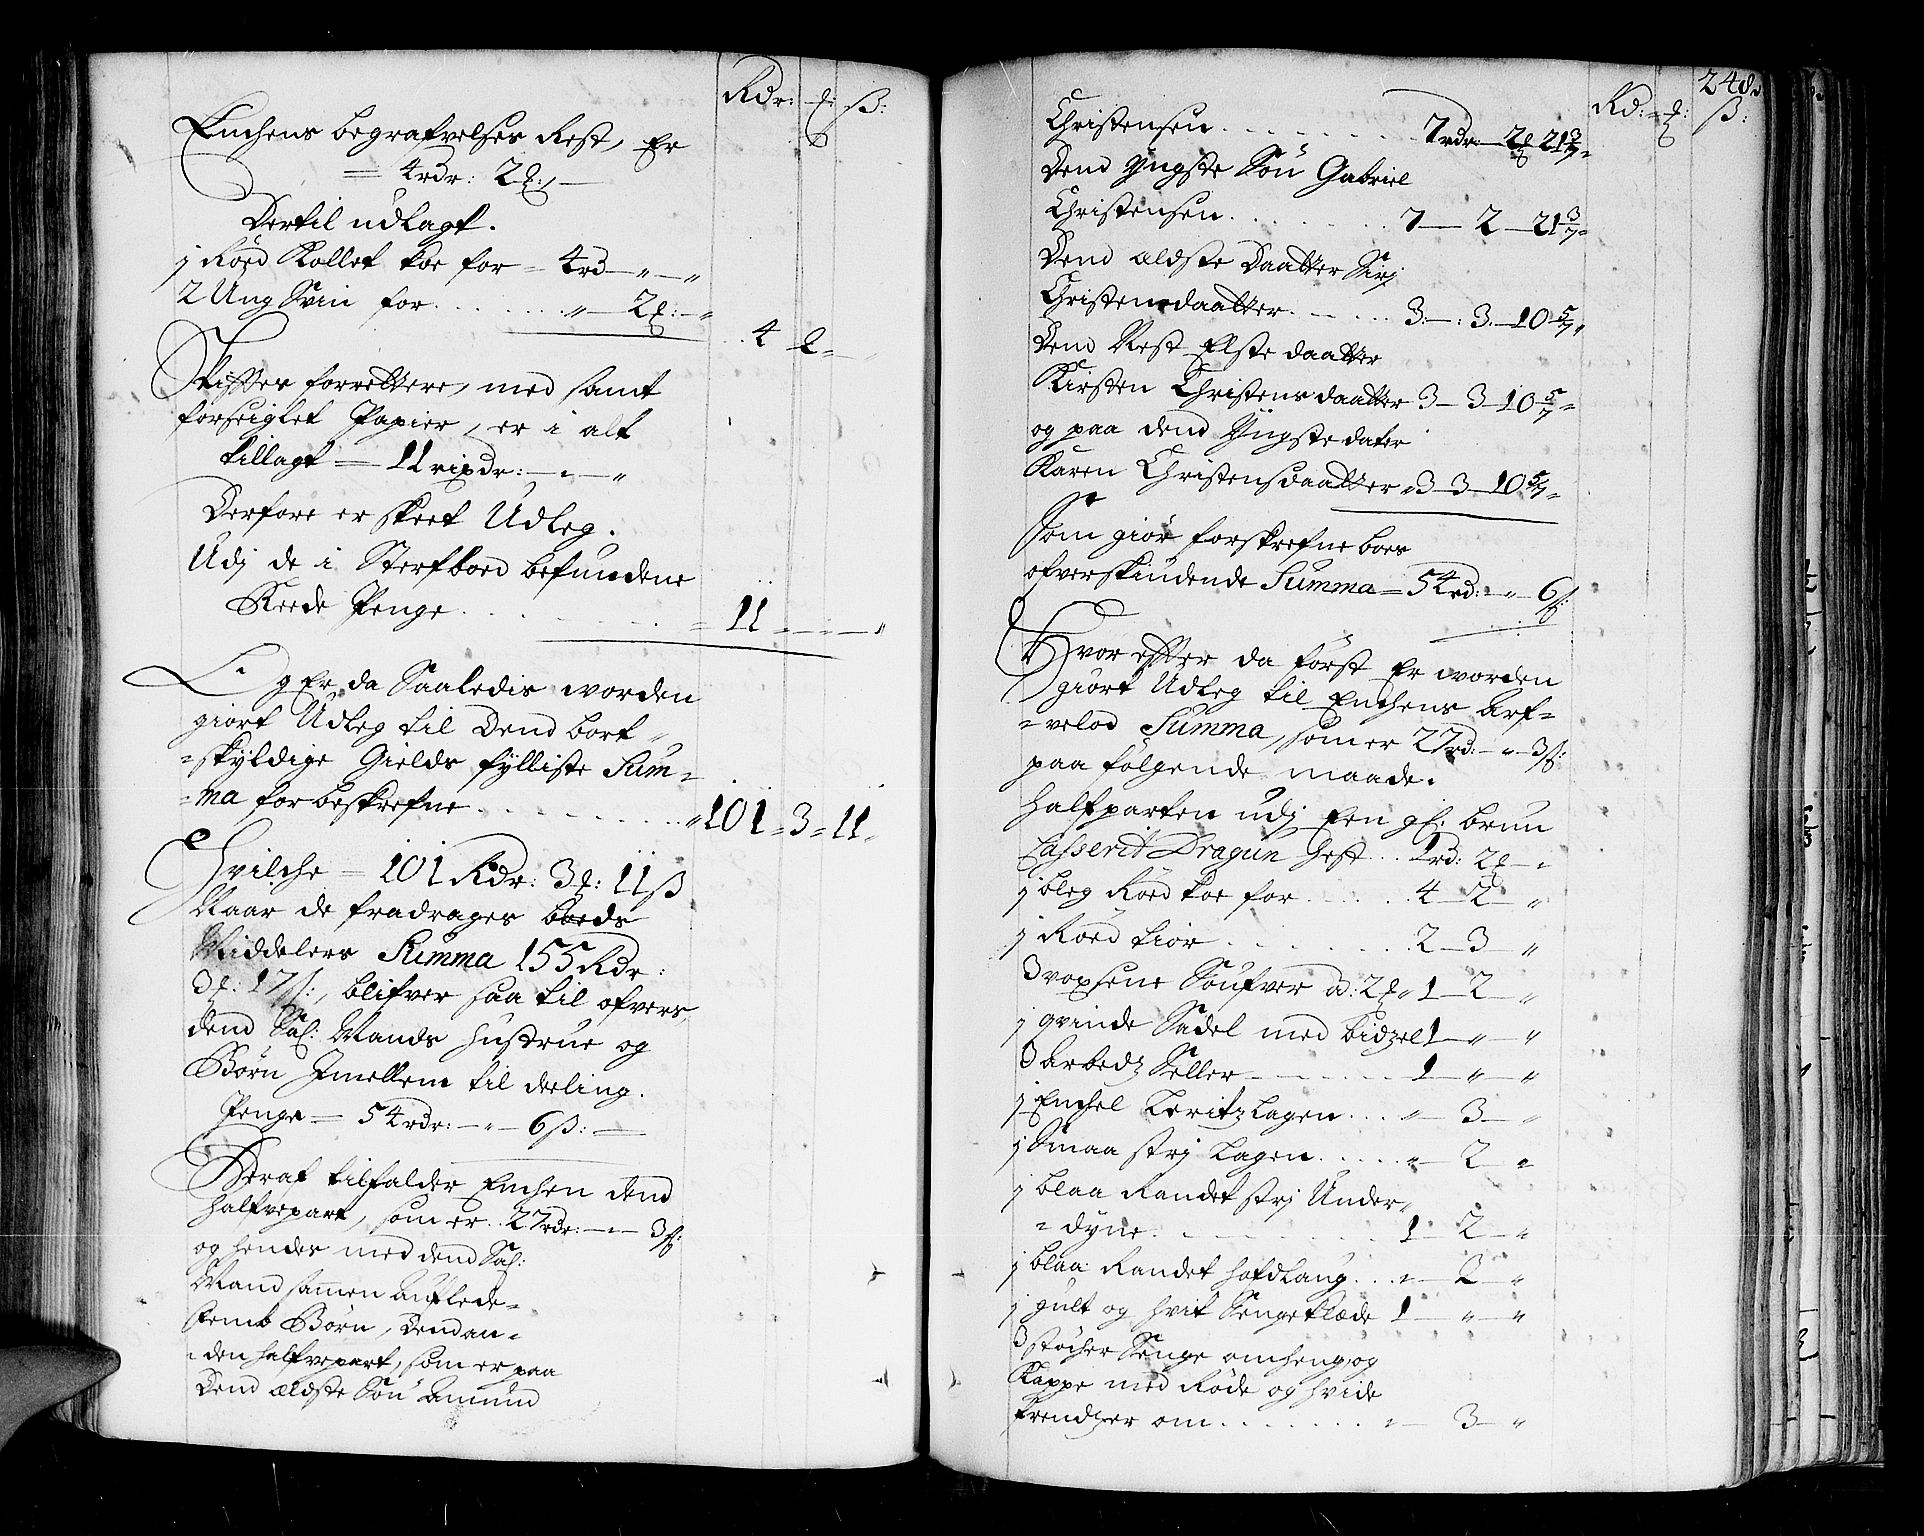 Rdr: ꝑ: ß:
Enchens begrafvelses Rest, Er
= 4rdr: 2ꝑ: —
Dertil udlagt.
j Röed Kollet koe for = 4rd — " — "
2 Ung Svin for . . . . . " — 2ꝑ: — "
4 2 —
Skifftes forrettere, med samt
forseiglet Papier, er i alt
tillagt = 11 rixdr: — " — "
Derfore er skeet Udleg.
Udj de i Sterfboed befundene
Reede Penge . . . . . = 11 — " — "
Og Er da Saaledis worden
giort Udleg til Dend bort
=skyldige Gields fylliste Sum=
=ma forbeskrefne . . . . . "101 = 3 = 11 "
Hvilche = 101 Rdr: 3ꝑ: 11 ß
Naar de fradrages boeds
Middelers Summa 155 Rdr:
3ꝑ: 17ß:, blifver saa til ofvers,
dend Sal: Mands Hustrue og
Börn Imellem til deeling.
Penge = 54rdr: — " — 6ß: —
Deraf tilfalder Enchen dend
halfvepart, som er . 27rdr: — " — 3ß:
og hendes med dend Sal:
Mand samen Auflede=
=Börn, Dend an=
=den halfvepart, som er paa
Dend ældste Sön Amund
248
Rd: ꝑ: ß:
Christensen . . . . . 7rdr: — 2ꝑ 21 3/7 "
Dend Yngste Sön Gabriel
Christensen . . . . . 7 — 2 — 21 3/7 "
Dend aldste Daatter Sirj
Christensdaatter . . . . 3 — 3 — 10 5/7 "
Dend Nest Elste daatter
Kirsten Christensdaatter 3 — 3 — 10 5/7 "
og paa dend Yngste dater
Karen Christensdaatter " 3 — 3 — 10 5/7 "
Som giör forskrefne boes
ofverskiudende Summa = 54rd: — " — 6ß:
Hvor effter da först Er worden
giort Udleg til Enchens Arf=
=velod Summa, som er 27rd: — " — 3ß:
paa fölgende maade.
Halfparten udj Een gl: brun
Casserit Dragun Hest . . 1rd: 2ꝑ — "
j bleg Röed koe for . . . . 4 — 2 — "
j Röed kior . . . . . 2 — 3 — "
3 voxsene Soufver ad: 2ꝑ " 1 — 2 — "
j qvinde Sadel med bidzel 1 — " — "
3 Arbedz Seller . . . . 1 — " — "
j Enchel Leritz Lagen . . . " — 3 — "
j Smaa strj Lagen . . . . " — 2 — "
j blaa Randet strj Under
=dyne . . . . . 1 — 2 — "
j blaa Randet hofdlaug . . . " — 2 — "
j gult og hvit Sengeklæde 1 — " — "
3 støcher Senge omheng, og
Kappe med Röde og hvide
frendzer om . . . . . " — 3 — "